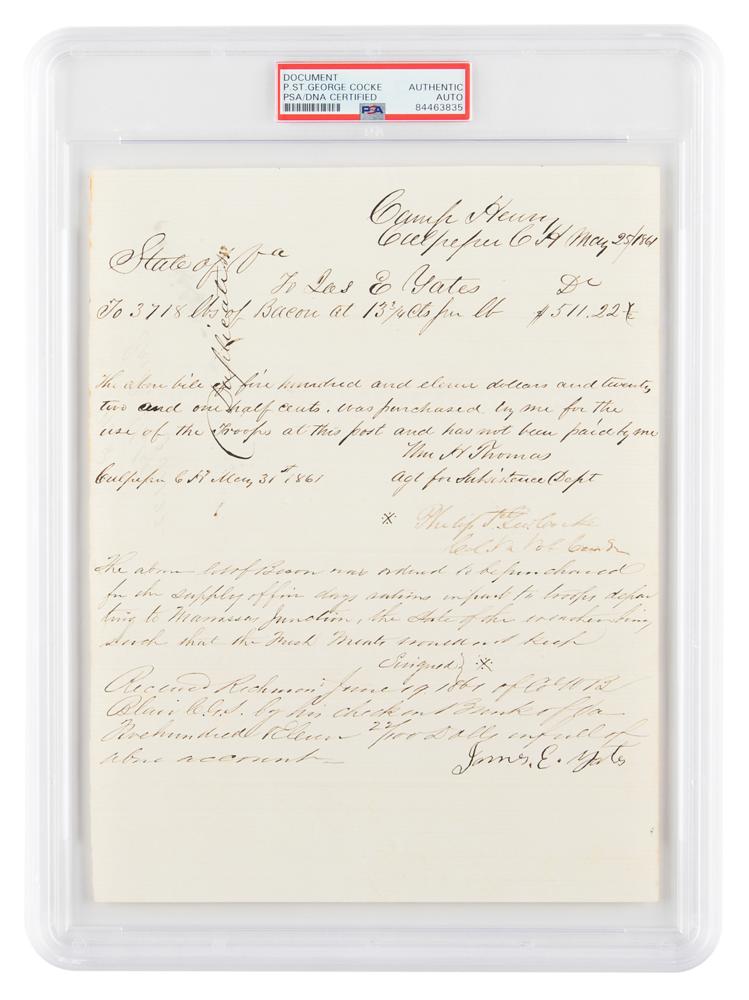 DOCUMENT
P.ST.GEORGE COCKE AUTHENTIC
PSA/DNA CERTIFIED AUTO
PSA 84463835
Camp Henry
Culpeper C H May 25/1861
State of Va
To Jas E Yates Dr
To 3718 lbs of Bacon at 13 3/4 cts per lb $511.22 ½
Duplicate
The above bile five hundred and eleven dollars and twenty
two and one half cents. was purchased by me for the
use of the Troops at this post and has not been paid by me
Wm H Thomas
Culpeper C H May 31st 1861 Agt for Subsistence Dept
※ Philip St Geo Cocke
Col. Va Vol Comdr
The above lot of Bacon was ordered to be purchased
for the supply of five days rations in part to troops depar
ting to Manassas Junction, the State of the weather being
such that the Fresh Meats would not keep
Singned} ※
Received Richmond June 19 1861 of Col W B
Blair C.G.S. by his check on Bank of Va
Five hundred & Eleven 22/100 Dolls in full of
above account
James. E. Yates